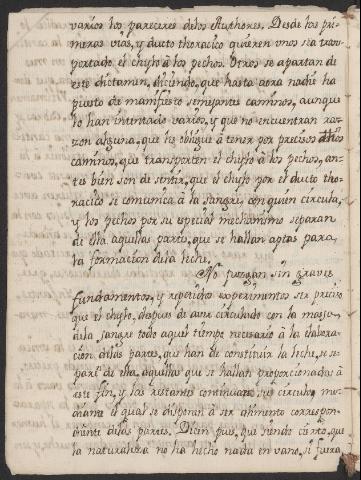 varios los pareceres delos Authores. Desde las pri-
meras vias, y ducto thoracico quieren unos sea trans-
portado el chylo à los pechos. Otros se apartan de
este dictamen, diciendo, que hasta aora nadie ha
puesto de manifiesto semejantes caminos, aunque
lo han intentado varios, y que no encuentran ra-
zon alguna, que les obligue à tener por precisos dhos
caminos, que transporten el chylo à los pechos, an-
tes bien son de sentir, que el chylo por el ducto tho-
racico se comunica à la sangre, con quien circula,
y los pechos por su especial mechanismo separan
de ella aquellas partes, que se hallan aptas para
la formacion dela leche.
No juzgan sin graves
fundamentos, y repetidos experimentos ser preciso
que el chylo, despues de aver circulado con la masa
dela sangre todo aquel tiempo necesario à la elabora-
cion delas partes, que han de constituir la leche, se se-
pare de ella, aquellas que se hallan proporcionadas à
este fin, y las restantes continuan sus circulos me-
diante el qual se disponen à ser alimento correspon-
diente delas partes. Dicen pues, que siendo cierto, que
la naturaleza no ha hecho nada en vano, si fuera